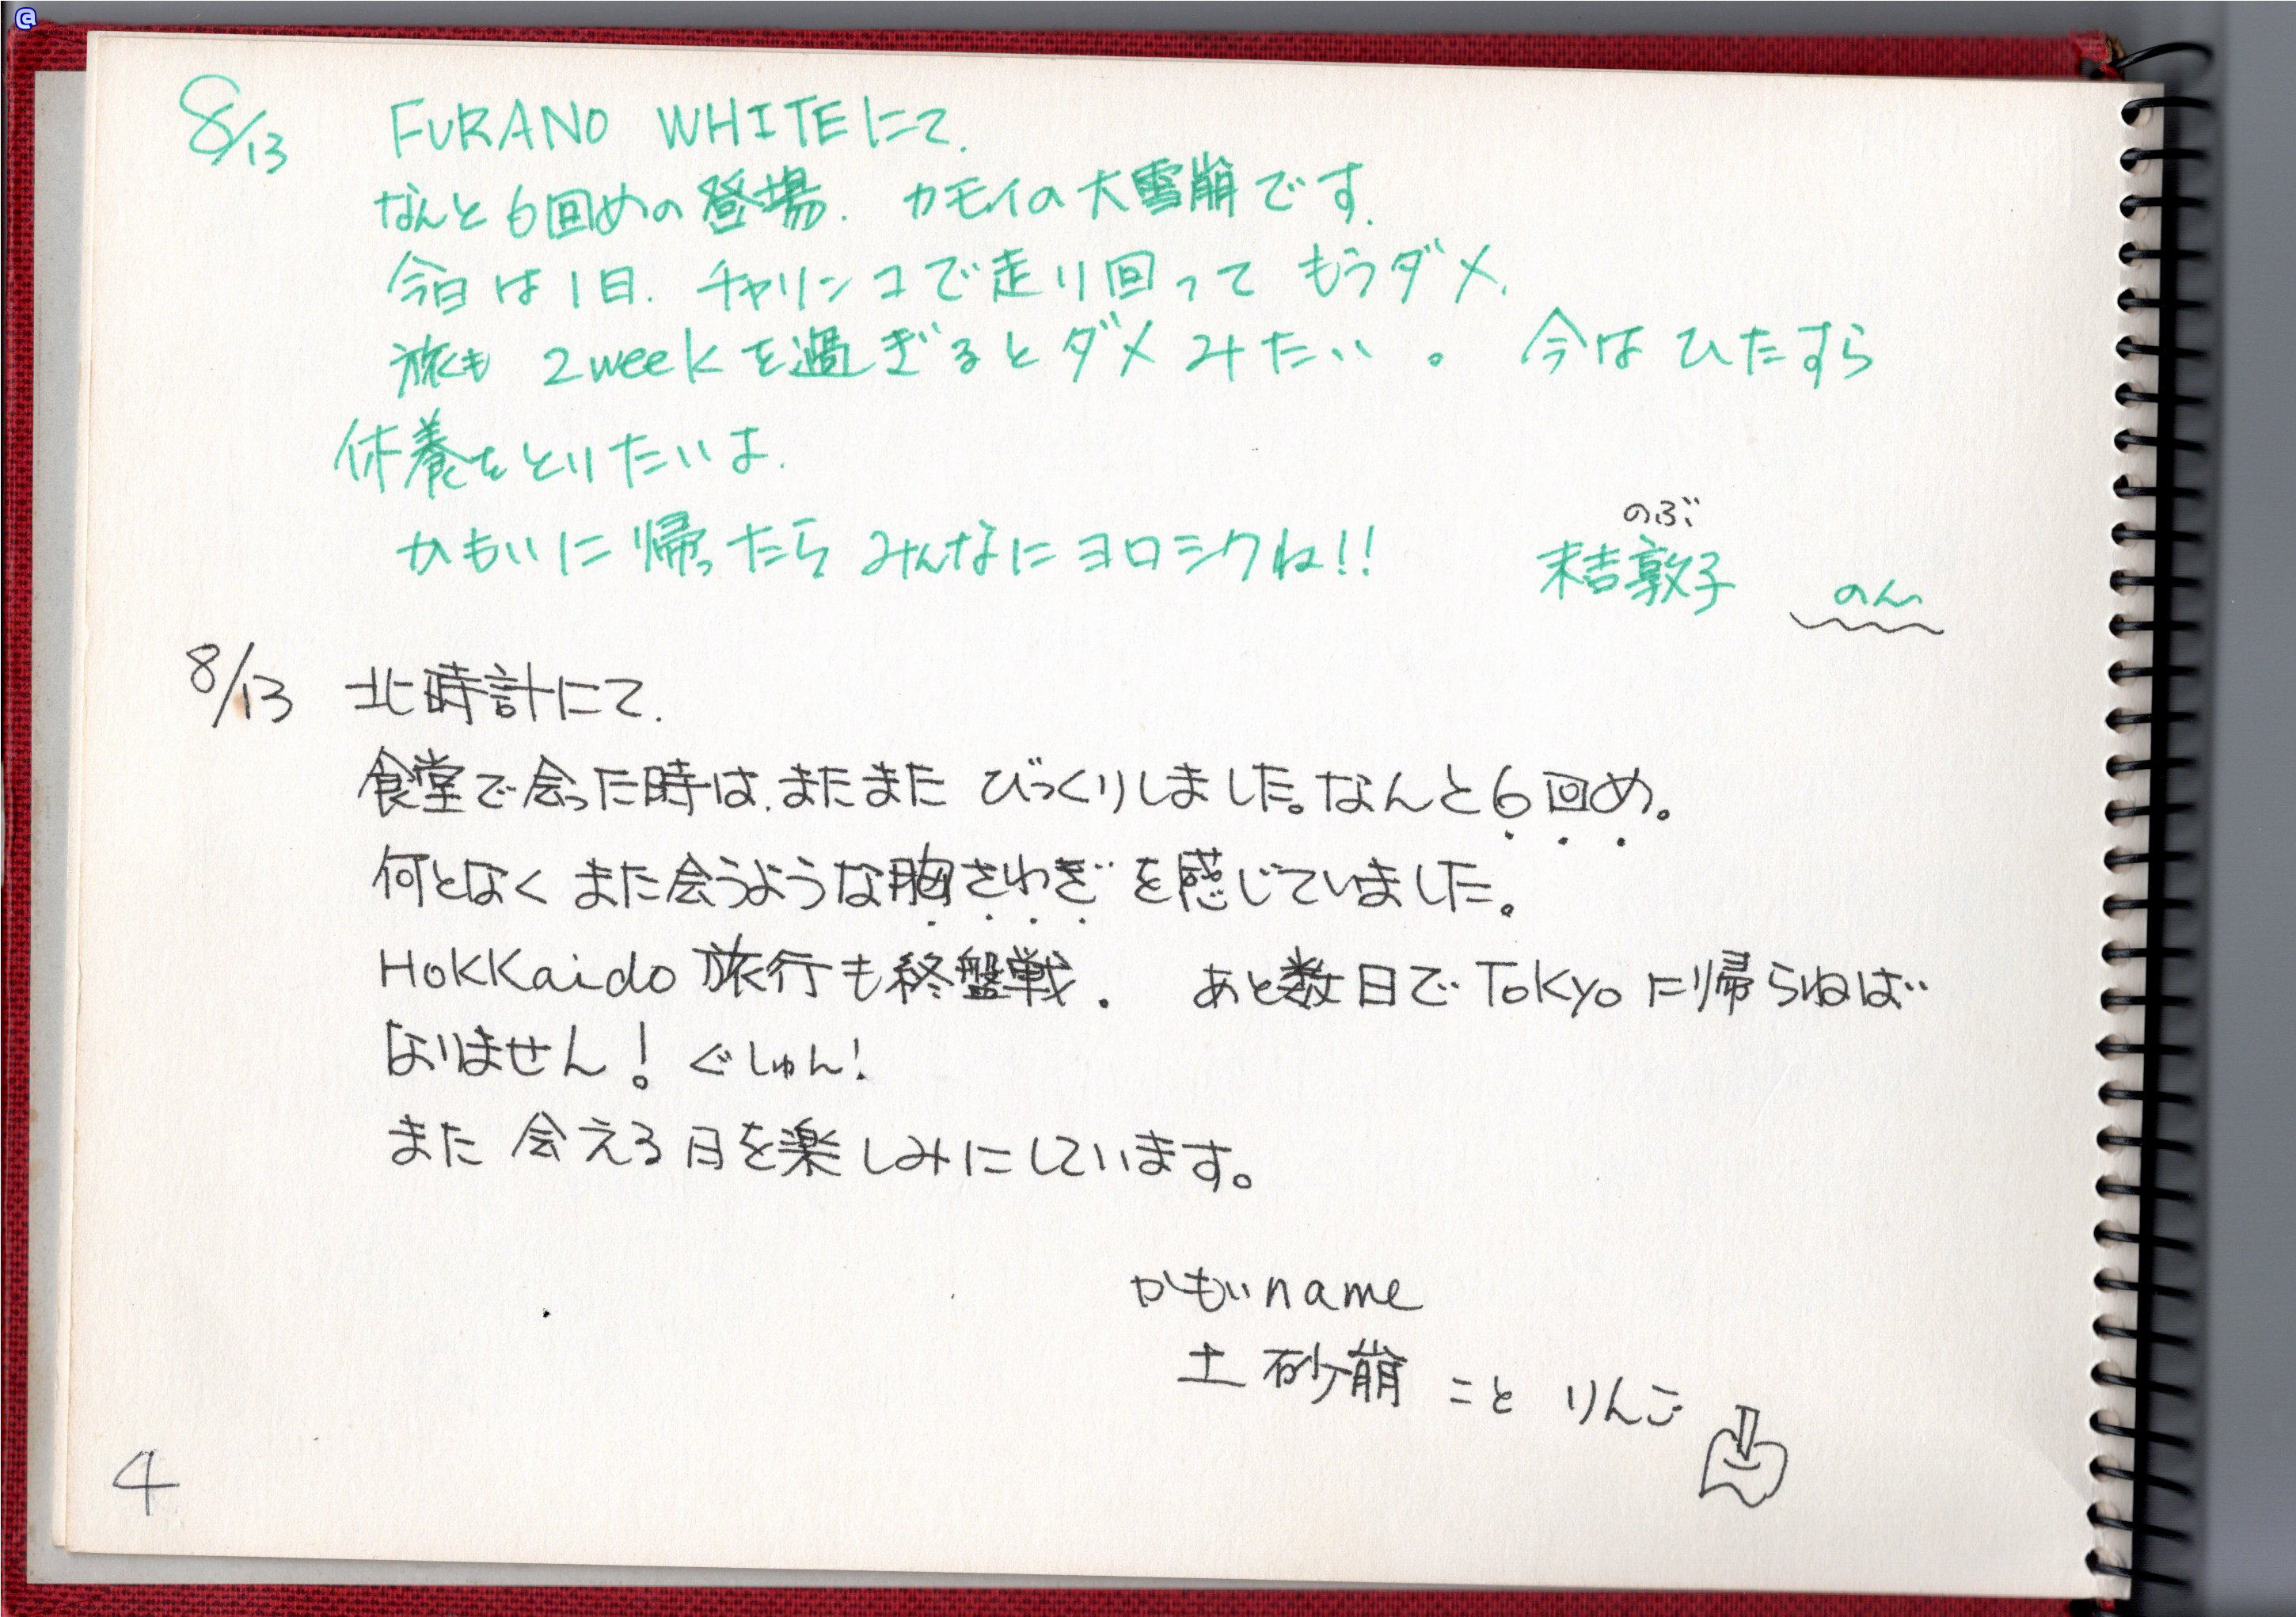 8/13 FURANO WHITEにて.
なんと6回めの登場. カモイの大雪崩です.
今日は1日. チャリンコで走り回って もうダメ.
旅も 2weekを過ぎるとダメみたい。 今は ひたすら
休養をとりたいよ.
かもいに帰ったら みんなにヨロシクね!!
のぶ
末吉敦子 のん
8/13 北時計にて.
食堂で会った時は、またまた びっくりしました。なんと6回め。
何となく また会うような胸さわぎを感じていました。
HoKKaido 旅行も終盤戦. あと数日で ToKyo に帰らねば
なりません! ぐしゅん!
また 会える日を楽しみにしています。
かもい name
土砂崩 こと りんご
4